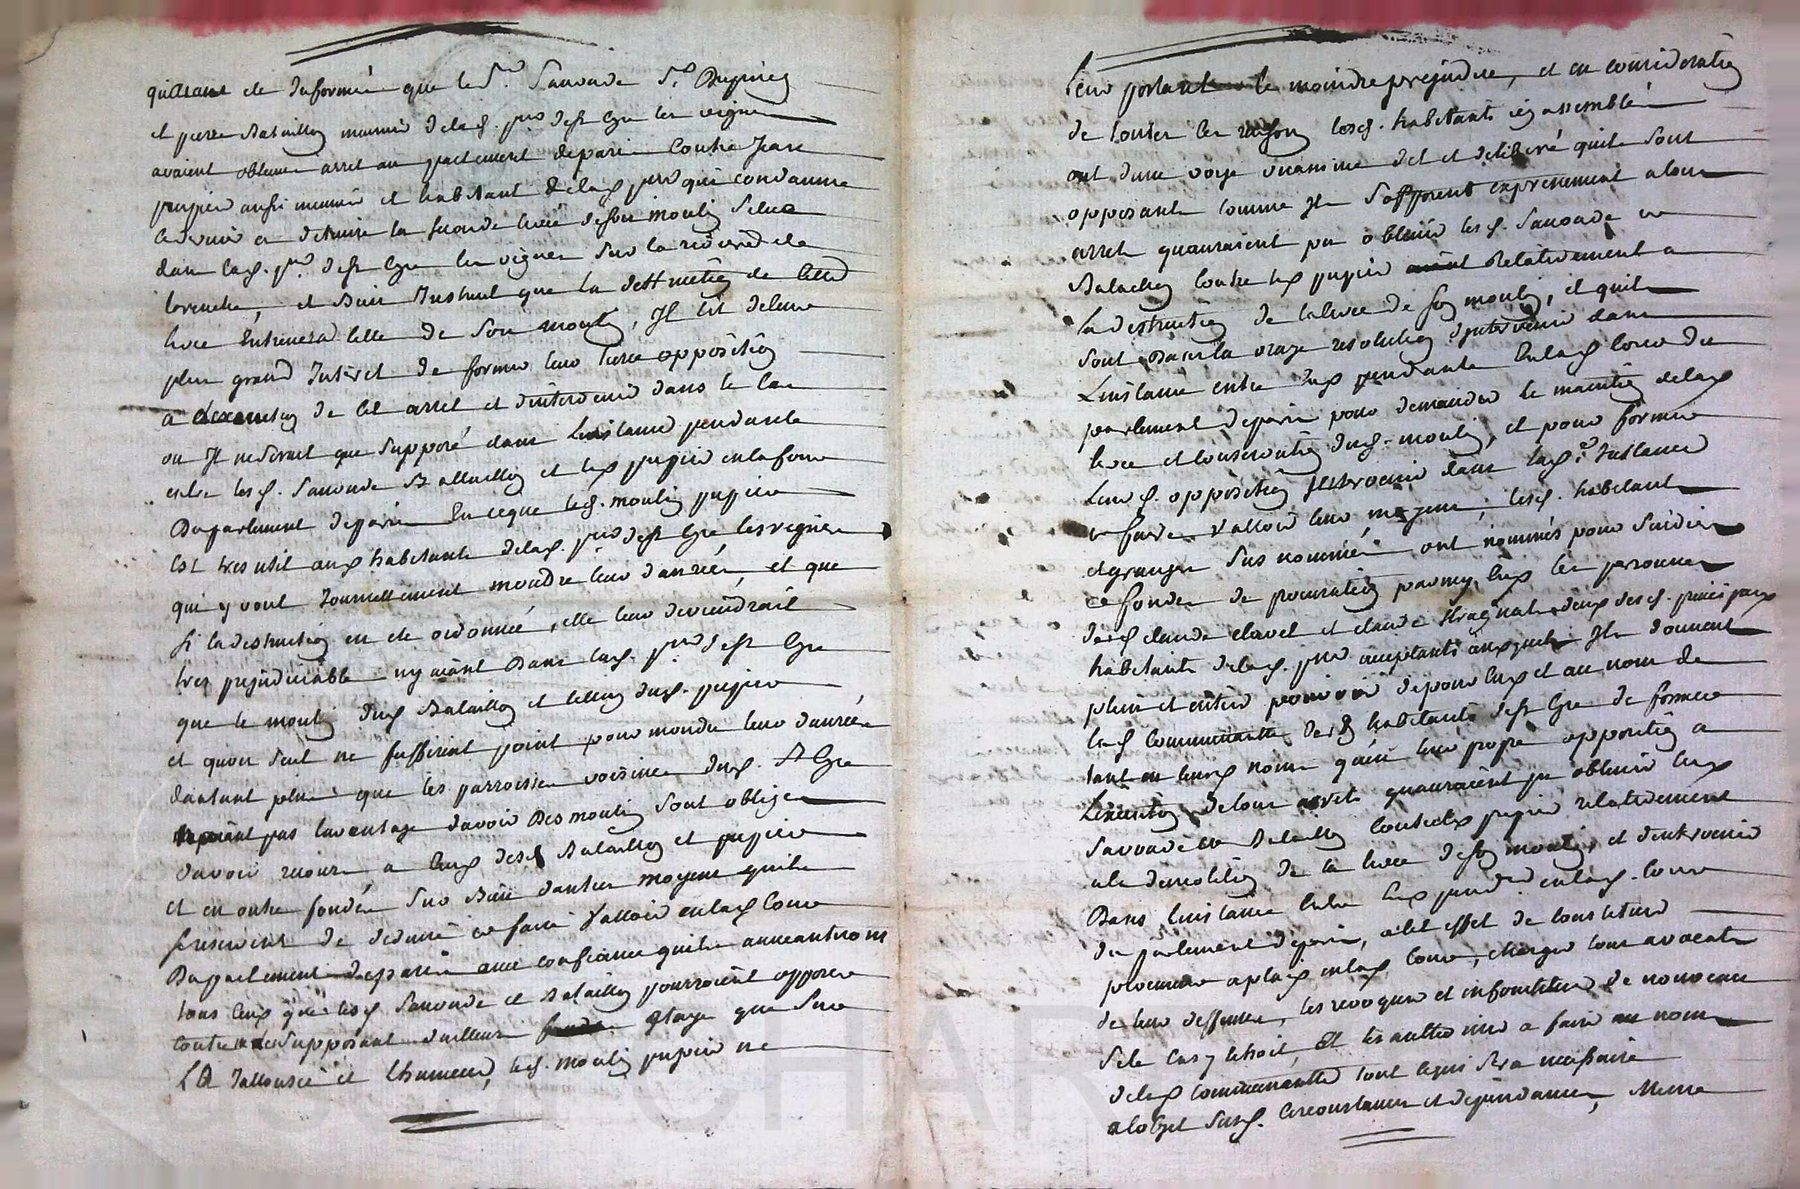 quils ont ete Informés que le Sr. Sauvade Sr. Dupinet
et pierre Batailloy munier delad. psse de St Cyr les vignes
avaient obtenu arret au parlement deparis Contre Jean
pupier aussi munier et habitant delad psse qui condamne
ce dernier a detruire la seconde levée deson mouliy situé
dans lad. psse de St Cyr les vignes sur la riviere de
toranche, et Bien Instruit que la destructioy de cette
levée Entrainera celle de son mouliy, Il est deleur
plus grand Interet de former leur tierce oppositioy
a Lexecutioy de cet arret et dintervenir dans le cas
ou Il ne serait que supposé dans Linstance pendante
entre lesd. Sauvade Batailloy et led pupier enla Cour
Du parlement deparis En ceque led. mouliy pupier
Est tres util aux habitants delad. psse de St Cyr les vignes
qui y vont Journellement moudre leur danrées, et que
si la destructioy en ete ordonnée, elle leur deviendrait
tres prejudiciable ny aiant Dans lad. psse de St Cyr
que le mouliy dud Batailloy et celluy dud. pupier
et quun seul ne suffirait point pour moudre leur danrées
dautant plus que les parroisses voisines dud. St Cyr
naiant pas lavantage davoir Des mouliy sont obligées
davoir recours a Ceux desd Batailloy et pupier
et en outre fondés sur Bien dautres moyens quils
se reservent de deduire et faire Valloir enlad Cour
Du parlement deparis avec confiance quils aneantiront
tous ceux que lesd Sauvade et Batailloy pourroient opposer
contre en supposant dailleurs etaye que sur
La Jallousie et Lhumeur, led. mouliy pupier ne
leur portant le moindre prejudice, et en consideratioy
de toutes les raisons lesd. habitants icy assemblés
ont dune voye unanime dit et deliberé quils sont
opposants comme Ils sopposent expressement a tous
arrets quauraient pu obtenir lesd. Sauvade et
Batailloy contre led pupier Relativement a
La destructioy de la levée de soy mouliy, et quils
sont Dans la vraye resolutioy dintervenir dans
Linstance entre Eux pendante Enlad Cour du
parlement deparis pour demander le maintien delad
levée et Conservatioy dud. mouliy, et pour former
Leur d. oppositioy Intervenir dans lad. Instance
et faire Valloir leur moyens, lesd. habitants
et grangers sus nommés ont nommés pour Sindics
et fondes de procuratioy parmy Eux les personnes
desd claude clavel et claude Magnat deux desd. principaux
habitants delad. psse acceptants auxquels Ils donnent
plein et entier pouvoir depour Eux et au nom de
lad Communauté Desd habitants de St Cyr de former
tant en leurs noms quen leur propre oppositioy a
Lexecutioy detous arrets quauraient pu obtenir Eux
Sauvade et Batailloy Contre led pupier relativement
ala demolitioy de la levée de soy mouliy, et dintervenir
Dans Linstance Entre Eux pendte enlad. Cour
du parlement deparis, a cet effet de constituer
procureur aplaid enlad Cour, charger tous avocats
de leur deffenses, les revoquer et en constituer de nouveau
si le cas y echoit, et les autres une a faire au nom
delad communauté tout cequi sera necessaire
a lobjet susd. Circonstances et dependances, Meme